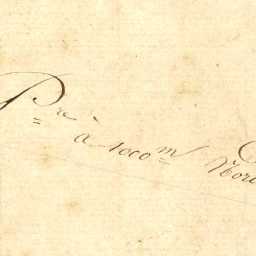 Pre à 1000m Nord